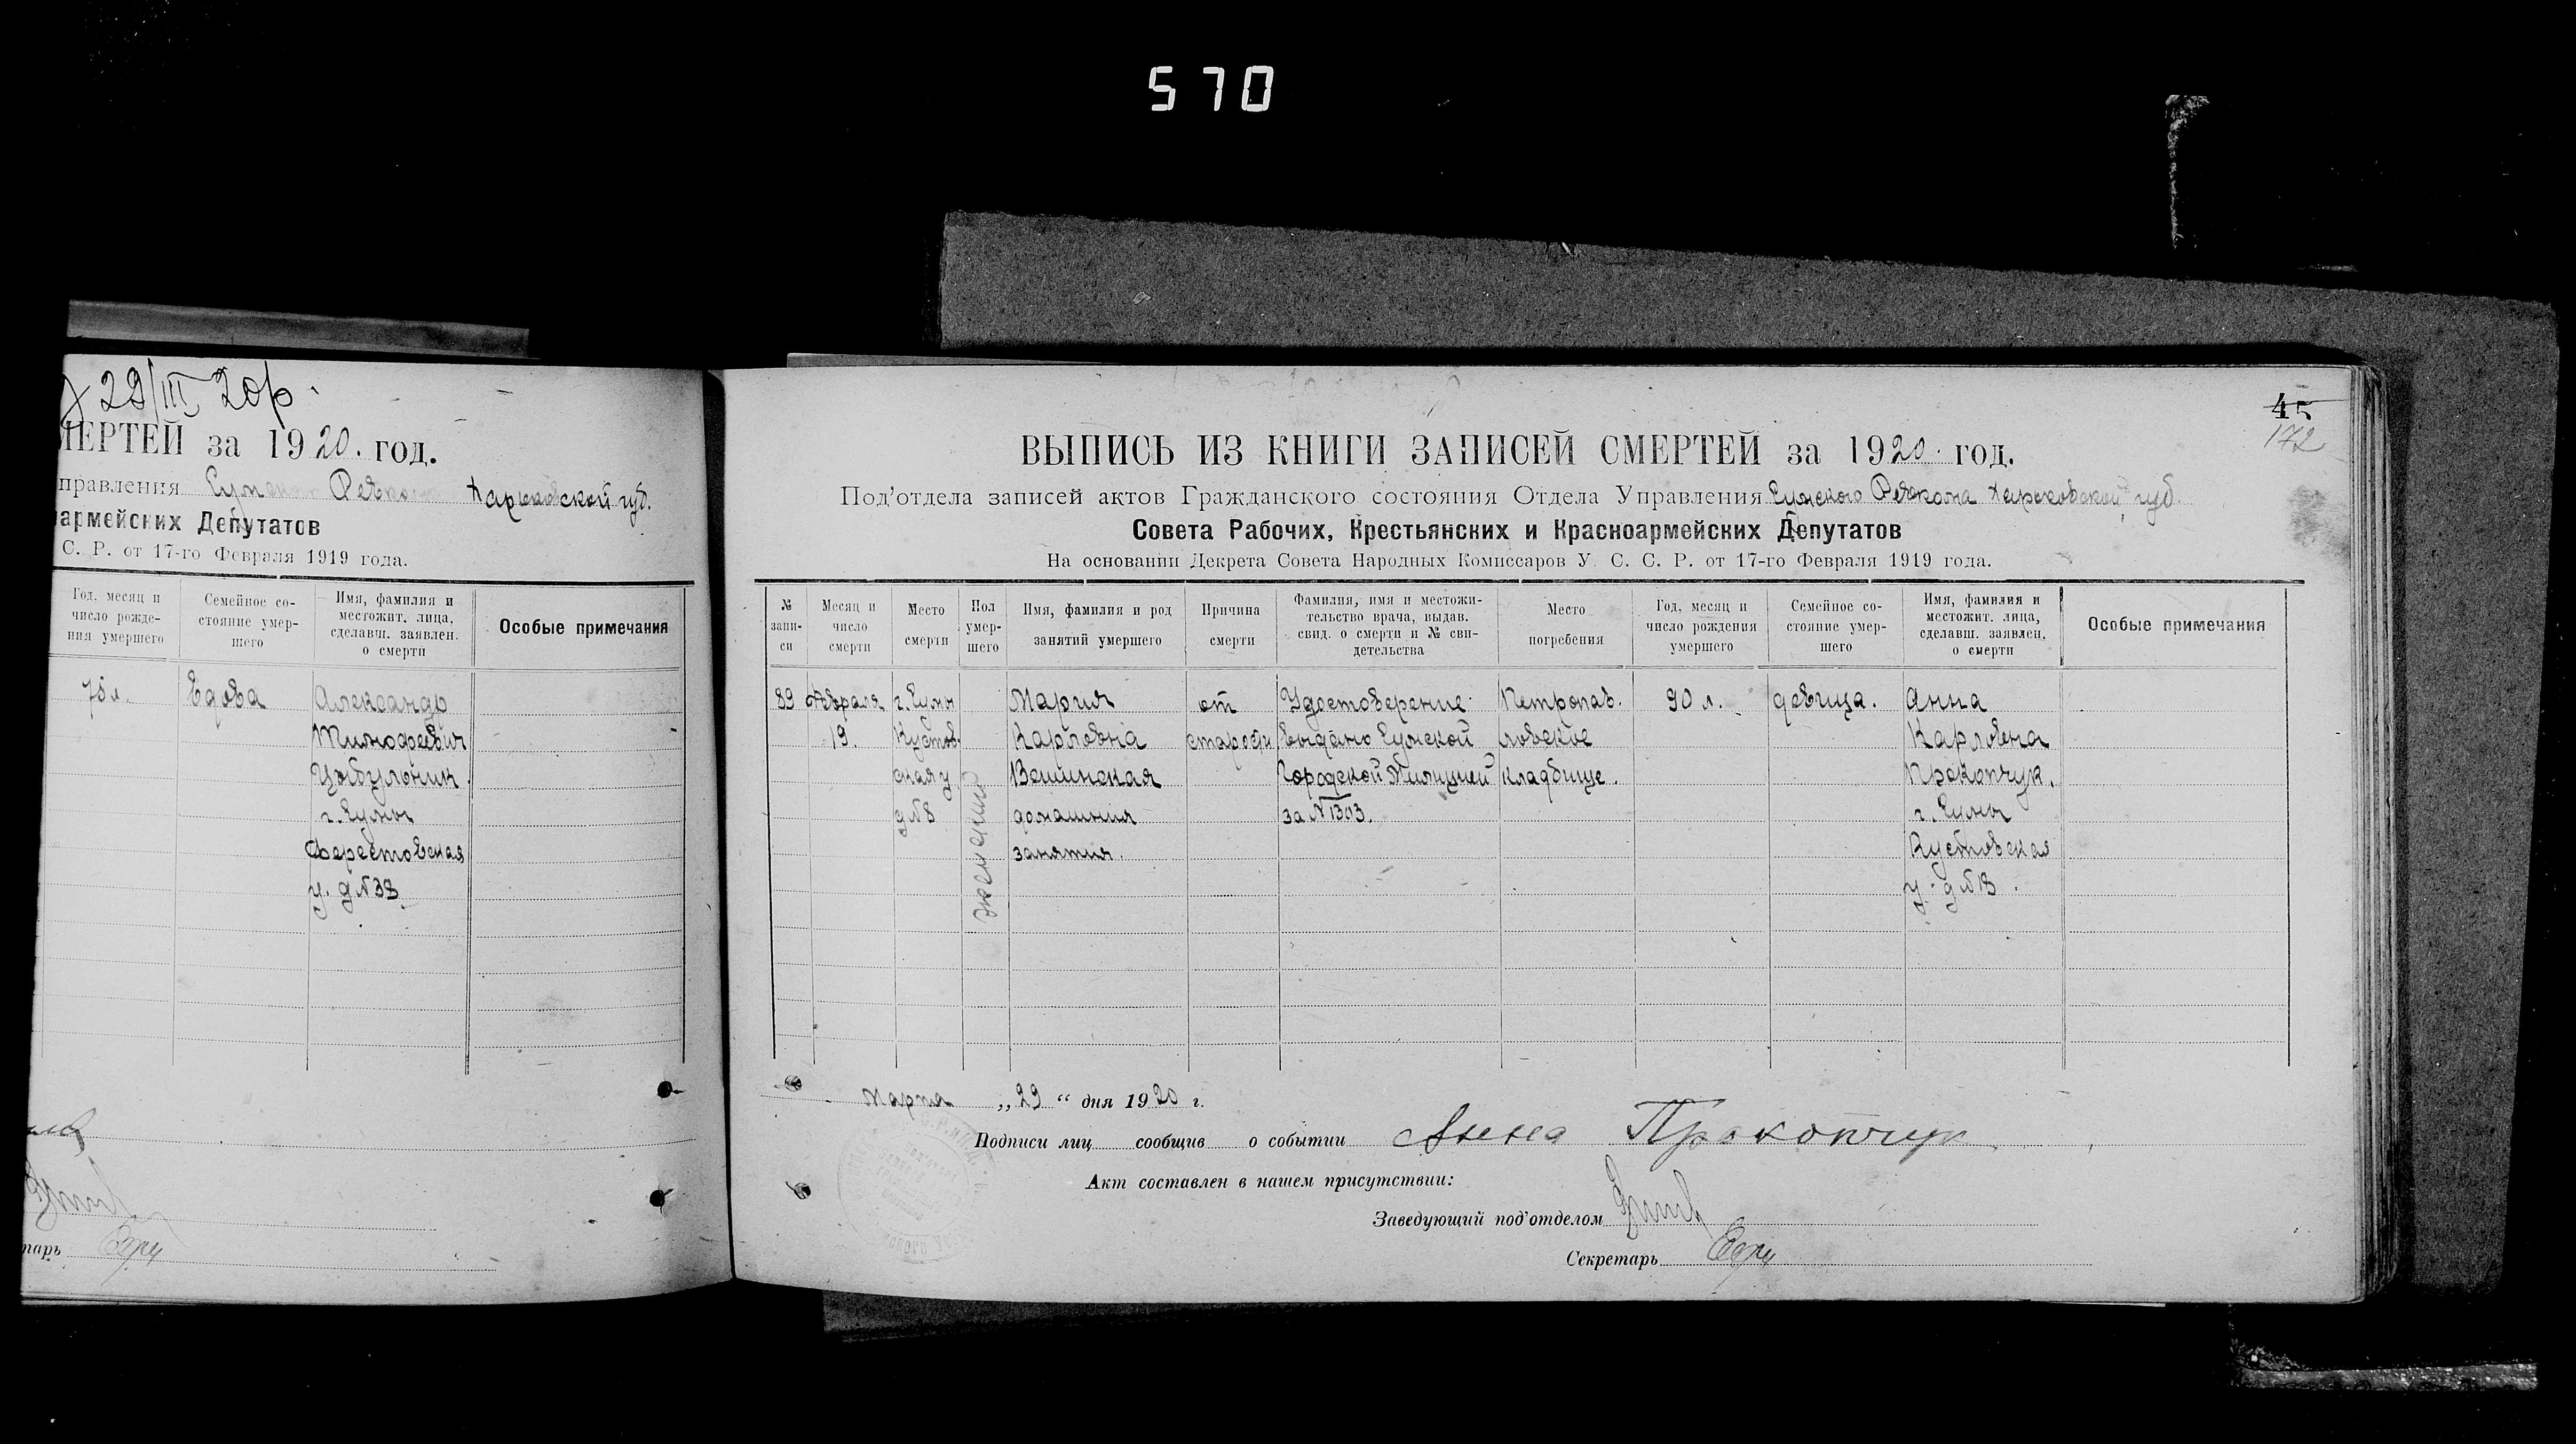 570
29/III 20 р.
МЕРТЕЙ за 1920. год.
правления Сумского Ревкома Харьковской губ.
армейских Депутатов
С. Р. от 17-го Февраля 1919 года.
Год, месяц и число рожде- ния умершего
Семейное со- стояние умер- шего
Имя, фамилия и местожит. лица, сделавш. заявлен. о смерти
Особые примечания
75 л. Вдова Александр
Тимофеевич
Цыбульник.
г. Сумы
у. д № 33
тарь
45
172
ВЫПИСЬ ИЗ КНИГИ ЗАПИСЕЙ СМЕРТЕЙ за 1920. год.
Под’отдела записей актов Гражданского состояния Отдела Управления Сумского Ревкома Харьковской губ.
Совета Рабочих, Крестьянских и Красноармейских Депутатов
На основании Декрета Совета Народных Комиссаров У. С. С. Р. от 17-го Февраля 1919 года.
№ запи- си
Месяц и число смерти
Место смерти
Пол умер- шего
Имя, фамилия и род занятий умершего
Причина смерти
Фамилия, имя и местожи- тельство врача, выдав. свид. о смерти и № сви- детельства
Место погребения
Год, месяц и число рождения умершего
Семейное со- стояние умер- шего
Имя, фамилия и местожит. лица, сделавш. заявлен. о смерти
Особые примечания
89 Февраля г. Сумы Мария от Удостоверение Петропав. 90 л. девица. Анна
19. Кустов. Карловна старости выдано Сумской ловское Карловна
ская у Городской Милицией кладбище. Прокопчук.
д № 8 домашния за № 1303. г. Сумы
занятия. Кустовская
женский
у. д № 18.
Марта „29“ дня 1920 г.
Подписи лиц сообщив о событии Анна Прокопчук
Акт составлен в нашем присутствии:
Заведующий под’отделом
Секретарь